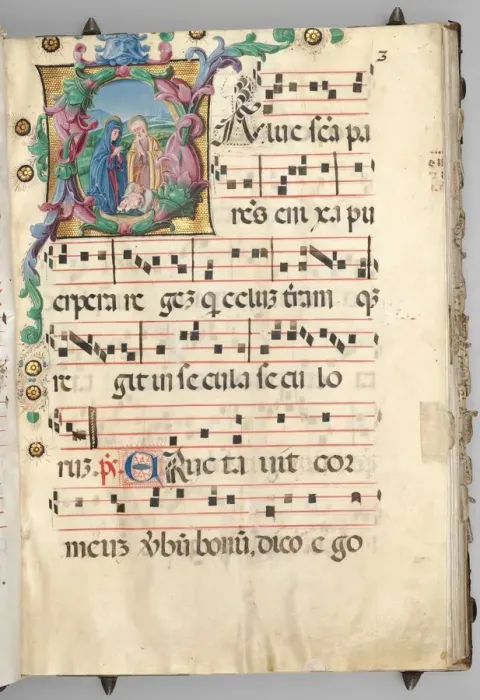 3
SAlue scā pa
rēs eni xa pu
erpera re gez q̄ celuz t̄ram qz
re git in se cula se cu lo
ruz. p̄s. ERuc ta uit cor
meuz v̄bū bonū, dico e go